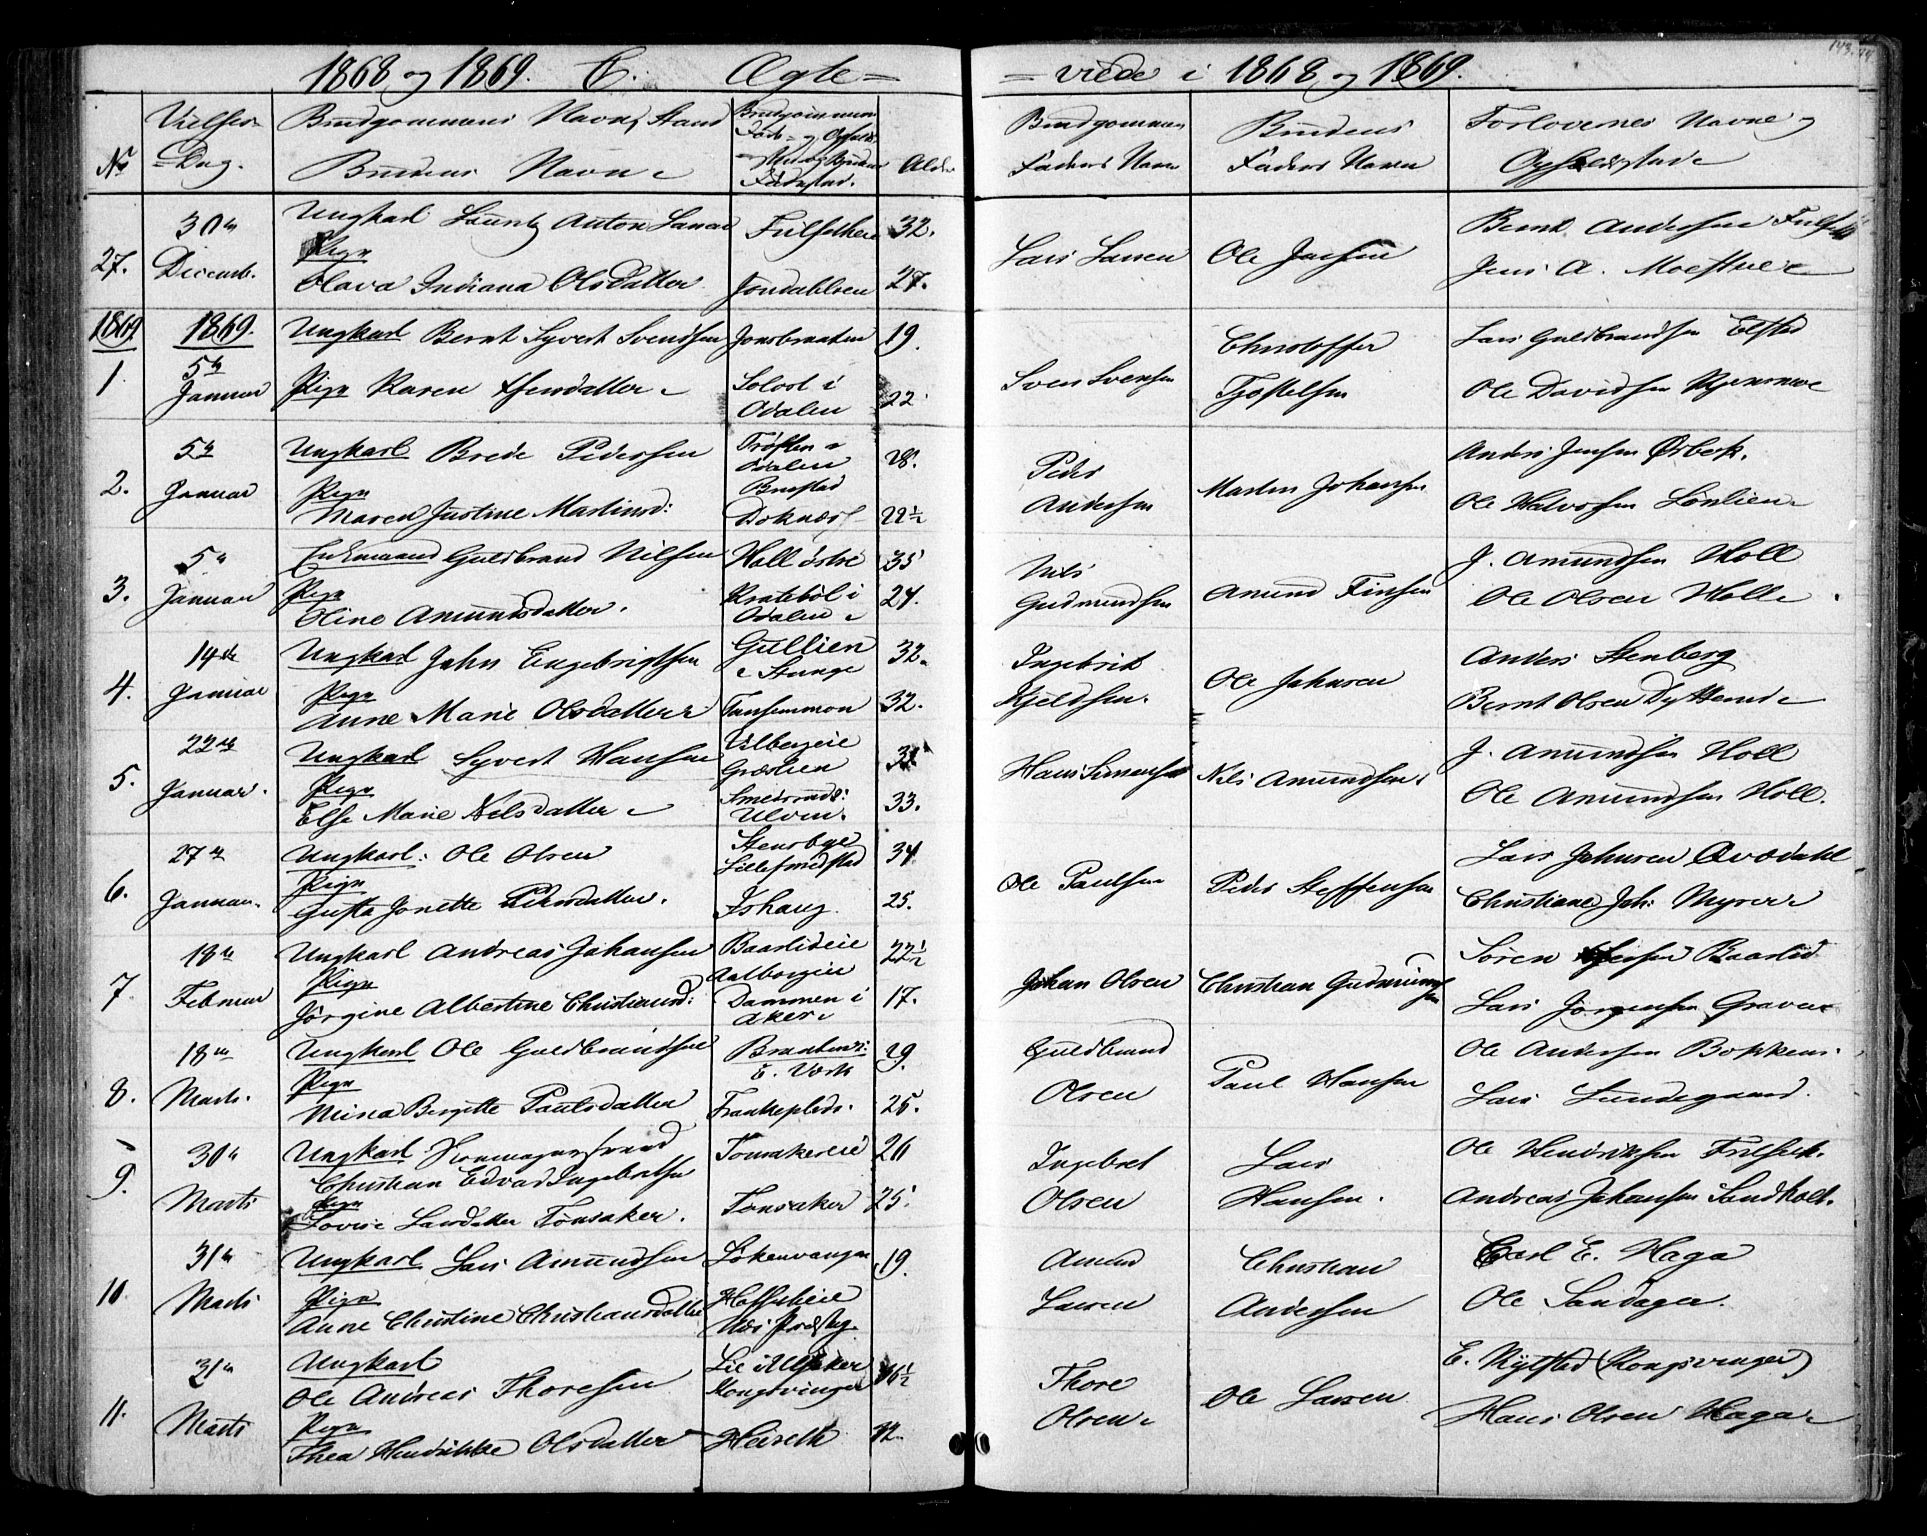 143.
1868 og 1869. C. Ægte=
=viede i 1868 og 1869.
No
Vielses=
=Dag.
Brudgommens Navn, Stand
Brudens Navn
Alder
Brudgommens
Faders Navn
Brudens
Faders Navn
Forlovernes Navne og
Opholdsted
27.
30te
Decemb.
Ungkarl Lauritz Anton Larsen
Pige
Olava Indiana Olsdatter
Fulsetheie
Jondahlsen
32.
27.
Lars Larsen
Ole Jensen
Bernt Andersen
Jens A. Moestue
1869
1869.
1
5te
Januar
Ungkarl Bernt Syvert Svendsen
Pige Karen
Jonsbraaten
i
Odalen
19.
22.
Sven Svensen
Christoffer
Lars Guldbrandsen Elstad
Ole Davidsen
2.
5te
Januar
Ungkarl Brede Pedersen
Pige
Maren Justine Martinsd:
Odalen
28.
22½
Peder
Andersen
Martin Johansen
Anders Jensen Ørbek.
Ole Halvorsen Lønlien
3.
5te
Januar
Enkemand Guldbrand Nilsen
Pige
Oline Amundsdatter.
Holl østre
i
Odalen
35
24.
Nils
Gudmundsen
Amund Finsen
J. Amundsen Holl
Ole Olsen Holl
4.
14de
Januar
Ungkarl John Engebrigtsen
Pige
Anne Marie Olsdatter
Gullien
Stange
32.
32.
Ingebrit
Kjeldsen.
Ole Johnsen
Anders Stenberg
Bernt Olsen Dytterud
5.
22de
Januar.
Ungkarl Syvert Hansen
Pige
Else Marie Nilsdatter
Græslien
Ulven.
33.
Hans Simensen
Nils Amundsen
J. Amundsen Holl
Ole Amundsen Holl.
6.
27de
Januar.
Ungkarl: Ole Olsen
Pige
Gusta Jonette Pedersdatter.
Stensbye
Ishaug.
34
25.
Ole Paulsen
Peder Steffensen
Lars Johnsen
Christiane Joh: Myrer
7.
18de
Februar
Ungkarl Andreas Johansen
Pige
Jørgine Albertine Christiansd:
Baarlideie
Dammen i
Aker
22½
17.
Johan Olsen
Christian Gudmundsen
Søren Baarlid
Lars Jørgensen Graver
8.
18de
Marts.
Ungkarl Ole Guldbrandsen
Pige
Mina Birgitte Paulsdatter
E. Værk
29.
25.
Guldbrand
Olsen
Paul Hansen
Ole Andersen
Lars Sundegaard.
9.
30te
Marts
Ungkarl
Christian Edvard Ingebretsen
Pige
Lovise Larsdatter Tønsaker.
Tønsakereie
Tønsaker
26
25.
Ingebret
Olsen
Lars
Hansen.
Ole Hendriksen
Andreas Johansen Sandholt.
10.
31te
Marts
Ungkarl Lars Amundsen
Pige
Anne Christine Christiansdatter
Løkenvangen
19.
Amund
Larsen
Christian
Andersen
Carl E. Haga
Ole Sandager.
11.
31te
Marts
Ungkarl
Ole Andreas Thoresen
Pige
Thea Hendrikke Olsdatter
Lie i Ullsaker
Kongsvinger
Heireth
Thore
Olsen
Ole Larsen
E. Nystad (Kongsvinger)
Hans Olsen Haga